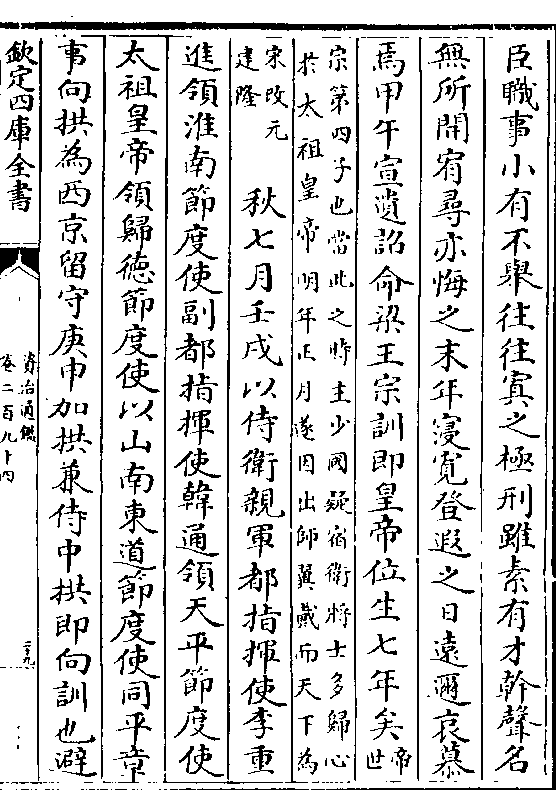 臣職事小有不舉往往寘之極刑雖素有才幹聲名
無所開宥尋亦悔之末年寖寛登遐之日遠邇哀慕
焉甲午宣遺詔命梁王宗訓即皇帝位生七年矣帝世
宗第四子也當此之時主少國疑宿衛將士多歸心
於太祖皇帝明年正月遂因出師翼戴而天下為
宋改元
建隆
秋七月壬戌以侍衛親軍都指揮使李重
進領淮南節度使副都指揮使韓通領天平節度使
太祖皇帝領歸德節度使以山南東道節度使同平章
事向拱為西京留守庚申加拱兼侍中拱即向訓也避
欽定四庫全書
資治通鑑
卷二百九十四
二十九